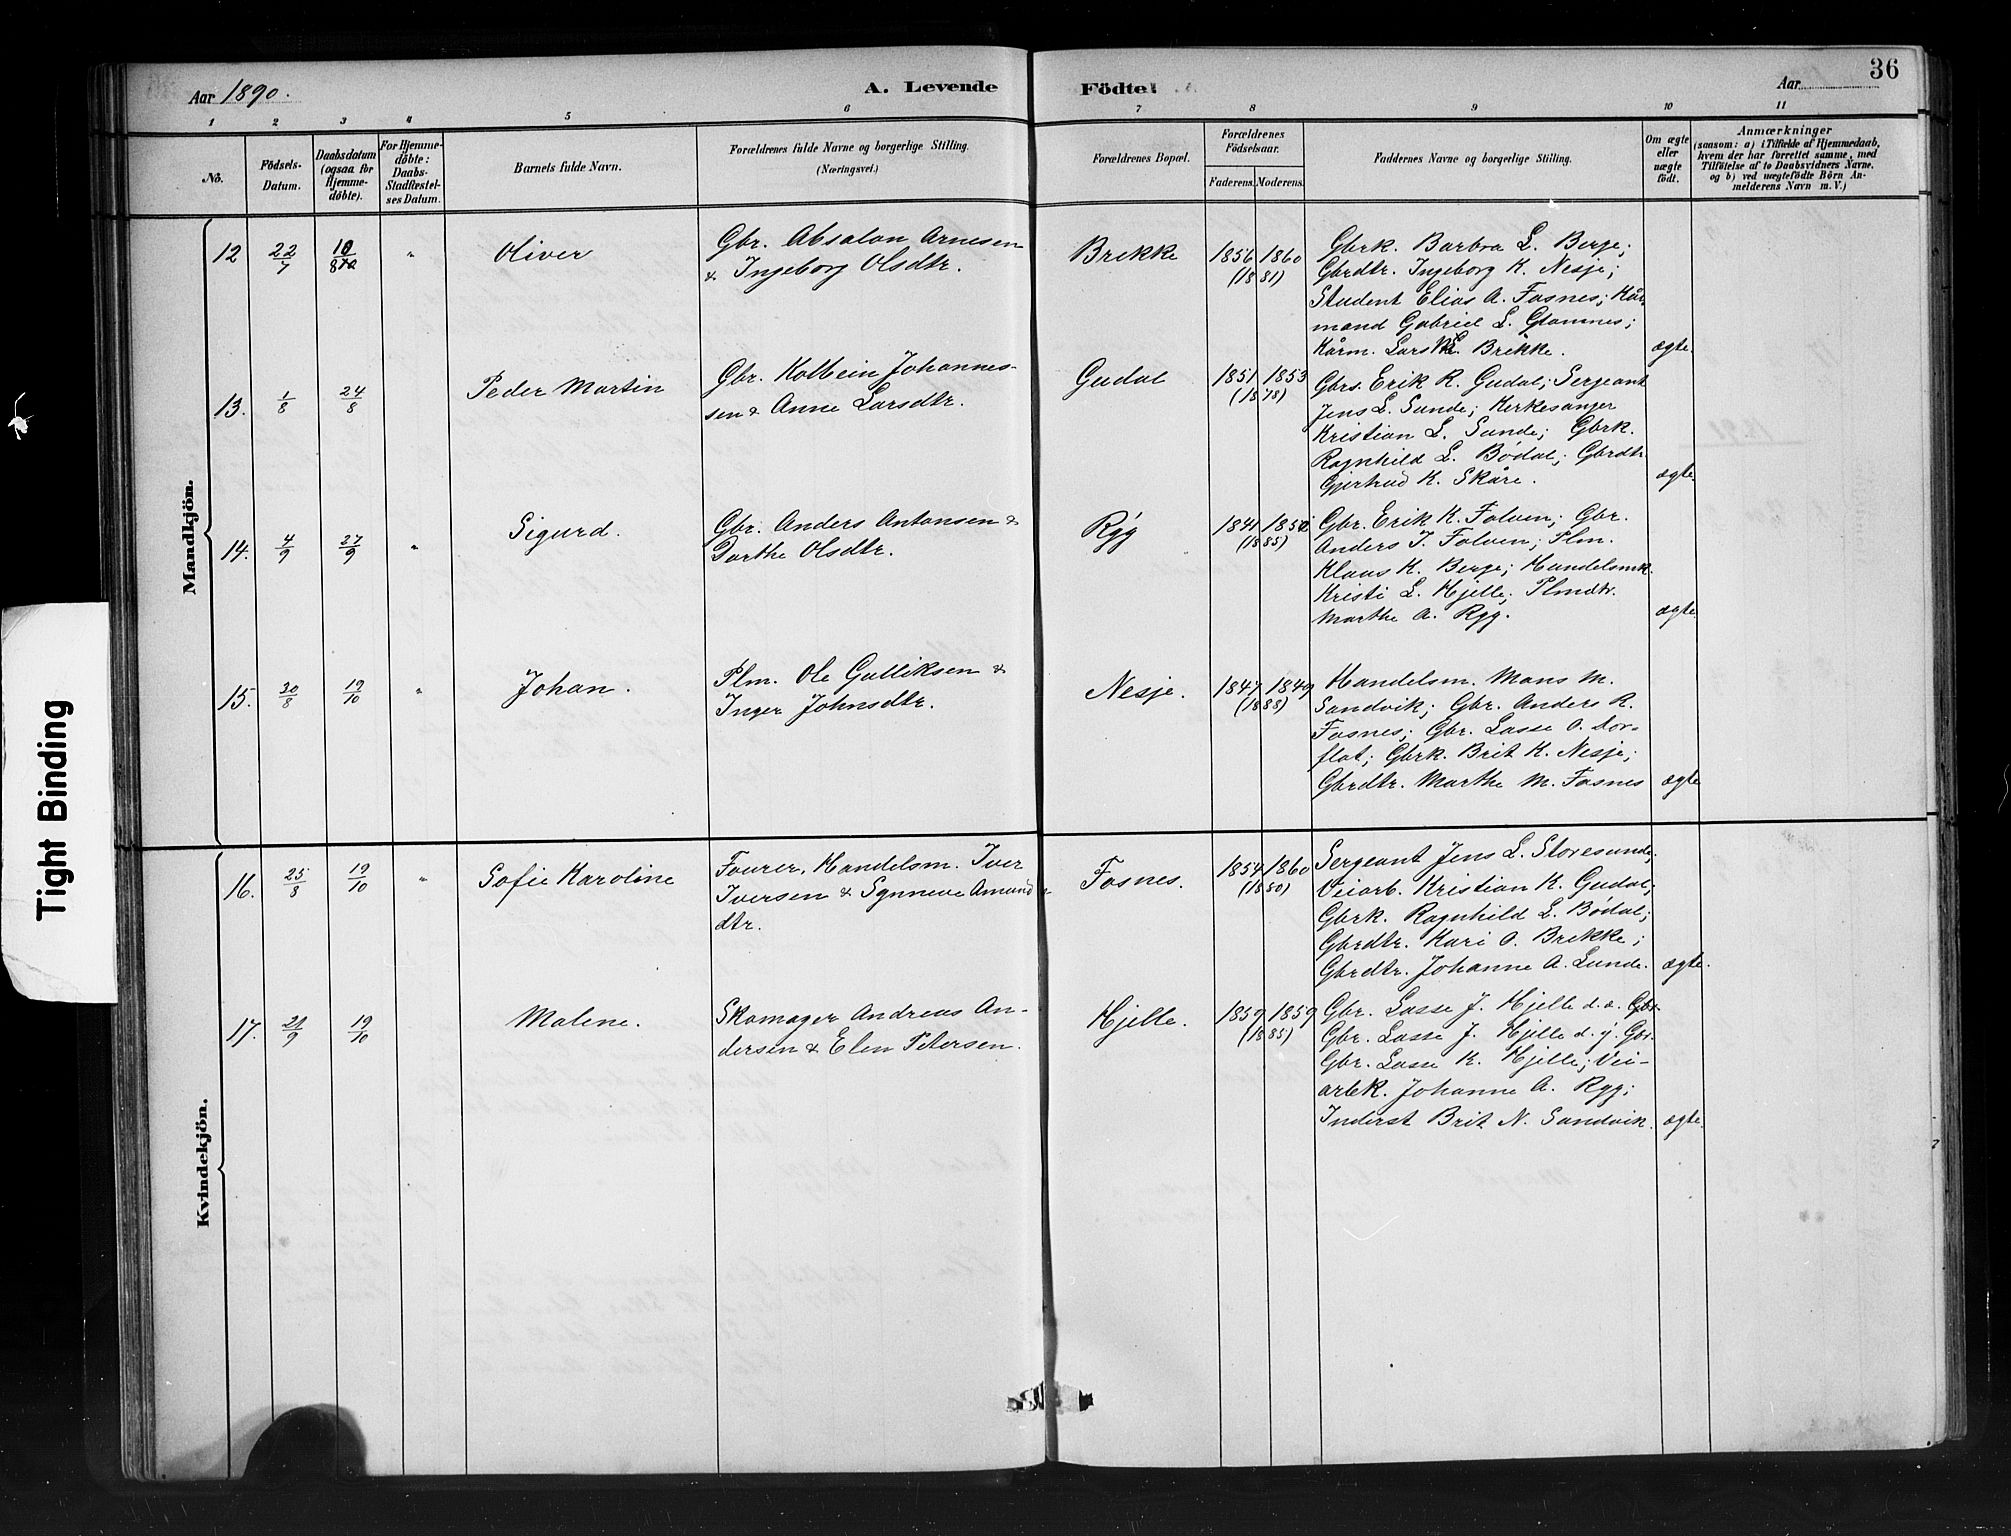 36
Aar 1890.
A. Levende
Födte.
Aar
1 2 3 4 5 6 7 8 9 10 11
No.
Födsels-
Datum.
Daabsdatum
(ogsaa for
Hjemme-
döbte).
For Hjemme-
döbte:
Daabs-
Stadfæstel-
ses Datum.
Barnets fulde Navn.
Forældrenes fulde Navne og borgerlige Stilling.
(Næringsvei.)
Forældrenes Bopæl.
Forældrenes
Födselsaar.
Faderens. Moderens.
Faddernes Navne og borgerlige Stilling.
Om ægte
eller
uægte
födt.
Anmærkninger
(saasom: a) i Tilfælde af Hjemmedaab,
hvem der har forrettet samme, med
Tilföielse af to Daabsvidners Navne.
og b) ved uægtefödte Börn An-
melderens Navn m. V.)
Mandkjön.
12 22/7 10/8 " Oliver
Gbr. Absalon Arnesen
& Ingeborg Olsdtr.
Brekke
1856 1860
(1881)
Gbrk. Barbra L. Berge;
Gbrdtr. Ingeborg K. Nesje;
Student Elias A. Fosnes; Kår-
mand Gabriel L. Glomnes;
Kårm. Lars L. Brekke.
ægte.
13. 1/8 24/8 Peder Martin
Gbr. Kolbein Johannes-
sen & Anne Larsdtr.
Gudal
1851 1853
(1878)
Gbrs. Erik R. Gudal; Sergeant
Jens L. Sunde; Kerkesanger
Kristian L. Sunde; Gbrk.
Ragnhild L. Bødal; Gbrdtr.
Gjertrud K. Skåre.
ægte.
14. 4/9 27/9 " Sigurd.
Gbr. Anders Antonsen &
Dorthe Olsdtr.
Rygg
1841
(1885)
Gbr. Erik K. Folven; Gbr.
Anders J. Folven; Plm.
Klaus K. Berge; Handelsmk.
Kristi L. Hjelle; Plmdtr.
Marthe A. Rygg.
ægte.
15. 30/8 19/10 " Johan.
Plm. Ole Gulliksen &
Inger Johnsdtr.
Nesje.
1847 1849
(1888)
Handelsm. Mons M.
Sandvik; Gbr. Anders R.
Fosnes; Gbr. Lasse O. Tor-
flot; Gbrk. Brit K. Nesje;
Gbrdtr. Marthe M. Fosnes
ægte
Kvindekjön.
16. 25/8 19/10 " Sofie Karoline
Fourer, Handelsm. Iver
Iversen & Synneve Amund
dtr.
Fosnes.
1854 1860
(1880)
Sergeant Jens L. Storesunde;
Veiarb. Kristian K. Gudal;
Gbrk. Ragnhild L. Bødal;
Gbrdtr. Kari O. Brekke;
Gbrdtr. Johanne A. Lunde.
ægte.
17. 21/9 19/10 Malene.
Skomager Andreas An-
dersen & Elen Petersen.
Hjelle.
1859 1859
(1885)
Gbr. Lasse J. Hjelle d. æ. Gbr.
Gbr. Lasse J. Hjelle d. y. Gbr.
Gbr. Lasse K. Hjelle; Vei-
arbk. Johanne A. Rygg;
Inderst Brit N. Sandvik.
ægte.
Tight Binding